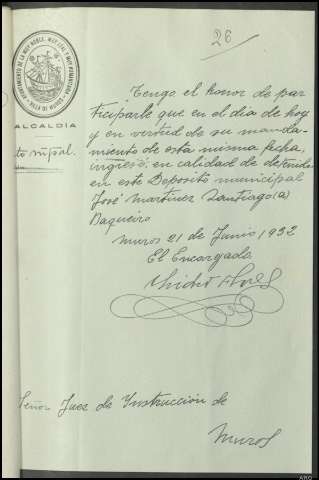 26
AYUNTAMIENTO DE LA MUY NOBLE, MUY LEAL Y MUY HUMANITARIA
VILLA DE MUROS
ALCALDÍA
to mpal.
Tengo el honor de par
ticiparle que en el dia de hoy
y en vertud de su manda-
miento de esta misma fecha,
ingresó, en calidad de detenido
en este Deposito municipal
José Martinez Santiago (a)
Baqueiro
Muros 21 de Junio 1932
El Encargado
Señor Juez de Instrucción de
Muros